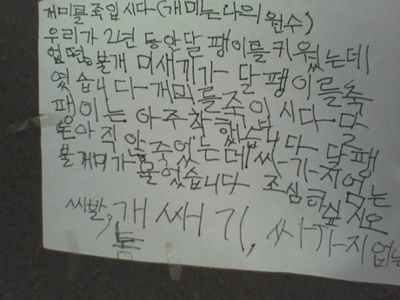 개미를 죽입시다(개미는 나의 원수)
우리가 2년 동안 달팽이를 키웠는데
엄떤, 불개미새끼가 달팽이를 죽
였습니다-개미를 죽입시다- 달
팽이는 아주 착했습니다- 달팽
은 아직 안죽었는데 싸-가-지없는
불개미가 물었습니다 조심하싶시오
씨발, 개 쌔기, 싸가-지 없는
놈